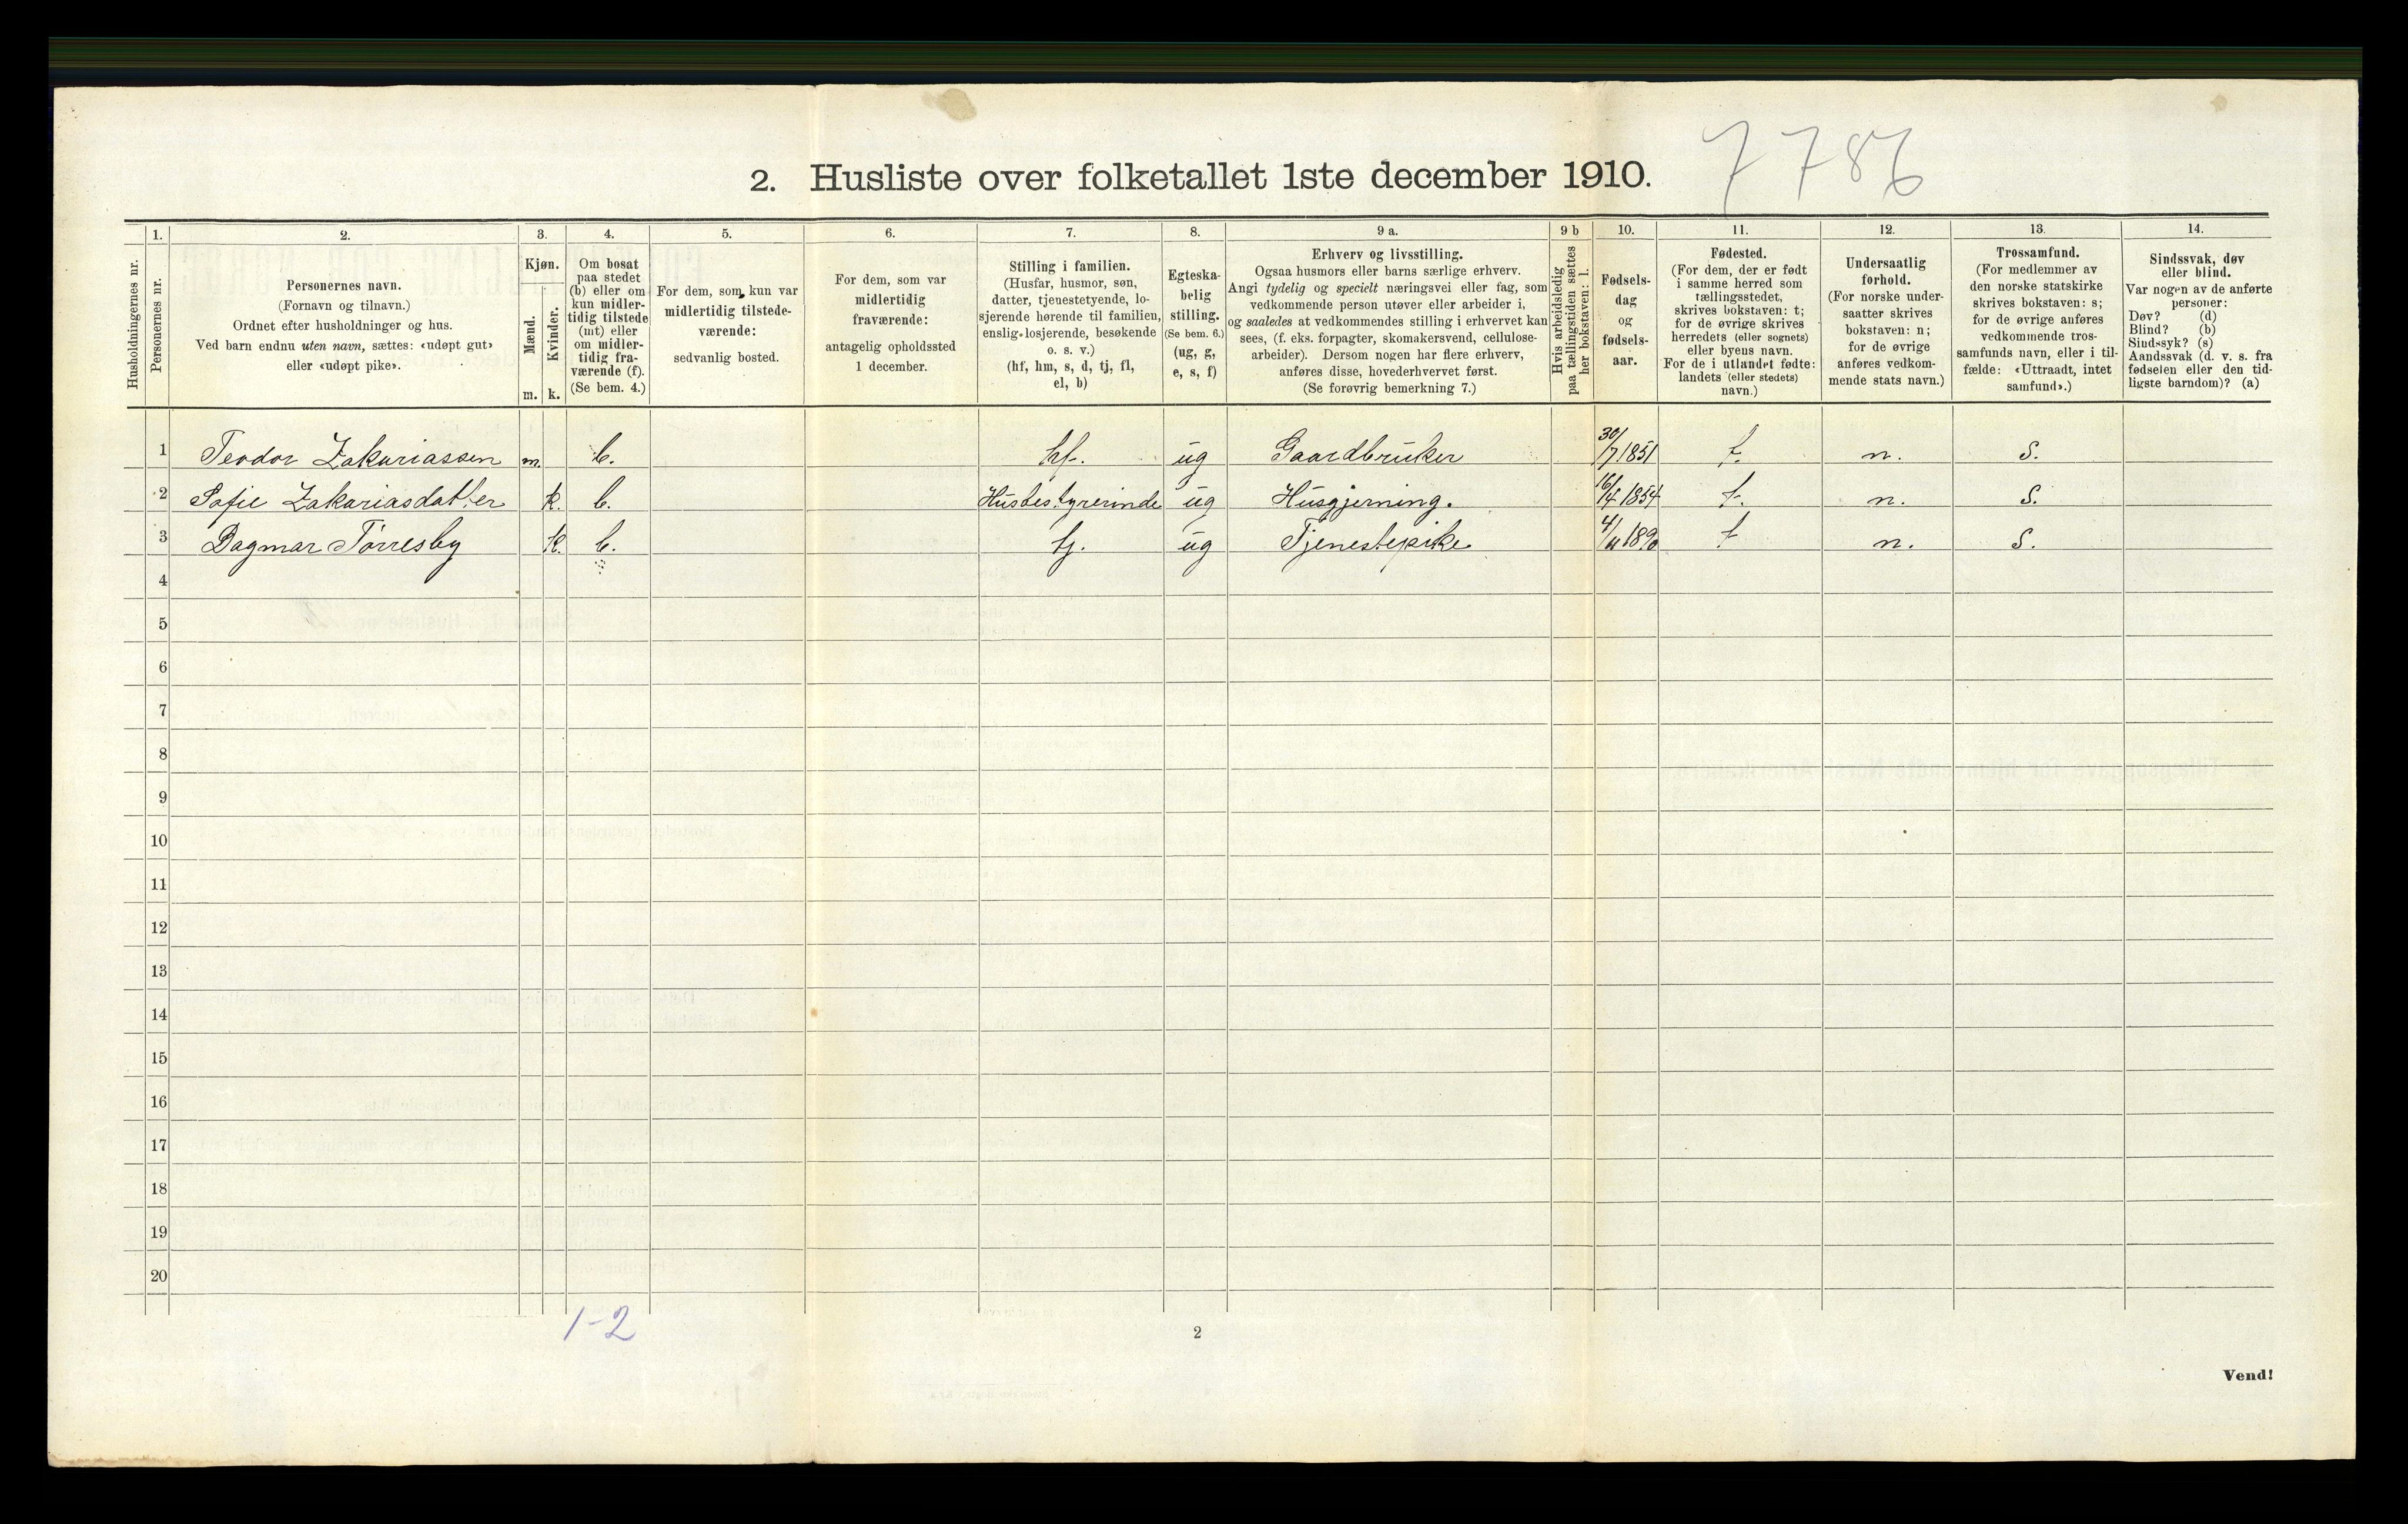 2. Husliste over folketallet 1ste december 1910.
7786
1. 2. 3. 4. 5. 6. 7. 8. 9 a. 9 b 10. 11. 12. 13. 14.
Husholdningernes nr.
Personernes nr.
Personernes navn.
(Fornavn og tilnavn.)
Ordnet efter husholdninger og hus.
Ved barn endnu uten navn, sættes: «udøpt gut»
eller «udøpt pike».
Kjøn.
Mænd.
Kvinder.
m. k.
Om bosat
paa stedet
(b) eller om
kun midler-
tidig tilstede
(mt) eller
om midler-
tidig fra-
værende (f).
(Se bem. 4.)
For dem, som kun var
midlertidig tilstede-
værende:
sedvanlig bosted.
For dem, som var
midlertidig
fraværende:
antagelig opholdssted
1 december.
Stilling i familien.
(Husfar, husmor, søn,
datter, tjenestetyende, lo-
sjerende hørende til familien,
enslig losjerende, besøkende
o. s. v.)
(hf, hm, s, d, tj, fl,
el, b)
Egteska-
belig
stilling.
(Se bem. 6.)
(ug, g,
e, s, f)
Erhverv og livsstilling.
Ogsaa husmors eller barns særlige erhverv.
Angi tydelig og specielt næringsvei eller fag, som
vedkommende person utøver eller arbeider i,
og saaledes at vedkommendes stilling i erhvervet kan
sees, (f. eks. forpagter, skomakersvend, cellulose-
arbeider). Dersom nogen har flere erhverv,
anføres disse, hovederhvervet først.
(Se forøvrig bemerkning 7.)
Hvis arbeidsledig
paa tællingstiden sættes
her bokstaven: l.
Fødsels-
dag
og
fødsels-
aar.
Fødested.
(For dem, der er født
i samme herred som
tællingsstedet,
skrives bokstaven: t;
for de øvrige skrives
herredets (eller sognets)
eller byens navn.
For de i utlandet fødte:
landets (eller stedets)
navn.)
Undersaatlig
forhold.
(For norske under-
saatter skrives
bokstaven: n;
for de øvrige
anføres vedkom-
mende stats navn.)
Trossamfund.
(For medlemmer av
den norske statskirke
skrives bokstaven: s;
for de øvrige anføres
vedkommende tros-
samfunds navn, eller i til-
fælde: «Uttraadt, intet
samfund».)
Sindssvak, døv
eller blind.
Var nogen av de anførte
personer:
Døv? (d)
Blind? (b)
Sindssyk? (s)
Aandssvak (d. v. s. fra
fødselen eller den tid-
ligste barndom)? (a)
1 Teodor Zakariassen m. b. hf. ug Gaardbruker 30/7 1851 t. n. S.
2 Sofie Zakariasdatter k. b. Husbestyrerinde ug Husgjerning. 16/4 1854 t. n. S.
3 Dagmar Törresby k. b. tj. ug Tjenestepike 4/11 1890 t n. S.
4
5
6
7
8
9
10
11
12
13
14
15
16
17
18
19
20
1-2
2
Vend!